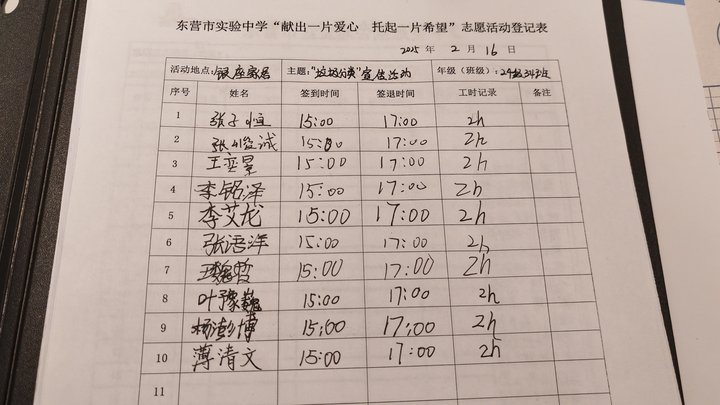 东营市实验中学“献出一片爱心 托起一片希望”志愿活动登记表
2025 年 2 月 16 日
活动地点：银座家居 主题：“垃圾分类”宣传活动 年级（班级）：24级343班
序号 姓名 签到时间 签退时间 工时记录 备注
1 张子恒 15:00 17:00 2h
2 张峻诚 15:00 17:00 2h
3 王奕景 15:00 17:00 2h
4 李铭泽 15:00 17:00 2h
5 李艾龙 15:00 17:00 2h
6 张语洋 15:00 17:00 2h
7 15:00 17:00 2h
8 叶豫巍 15:00 17:00 2h
9 杨澎博 15:00 17:00 2h
10 薄清文 15:00 17:00 2h
11